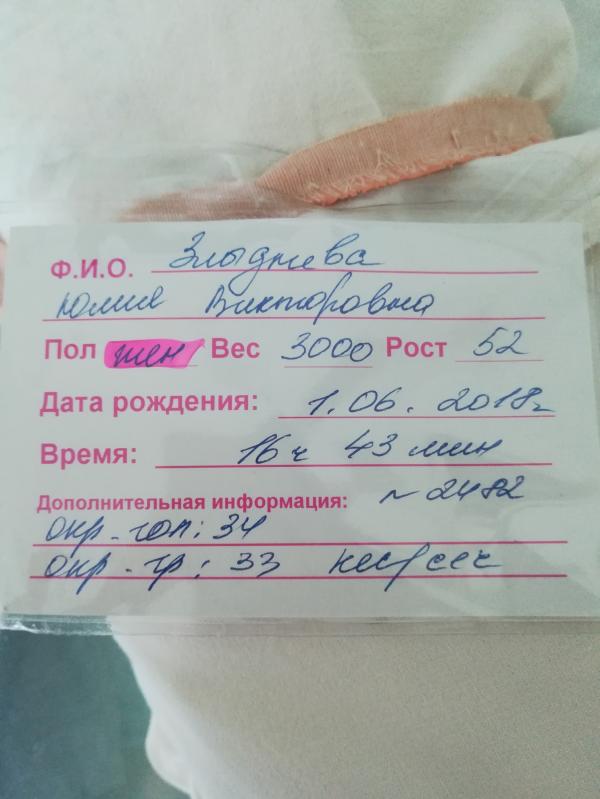 Ф.И.О. Злыднева
Юлия Викторовна
Пол жен Вес 3000 Рост 52
Дата рождения: 1.06.2018г
Время: 16ч 43 мин
Дополнительная информация: №2482
окр-гол: 34
окр-гр: 33 кес/сеч